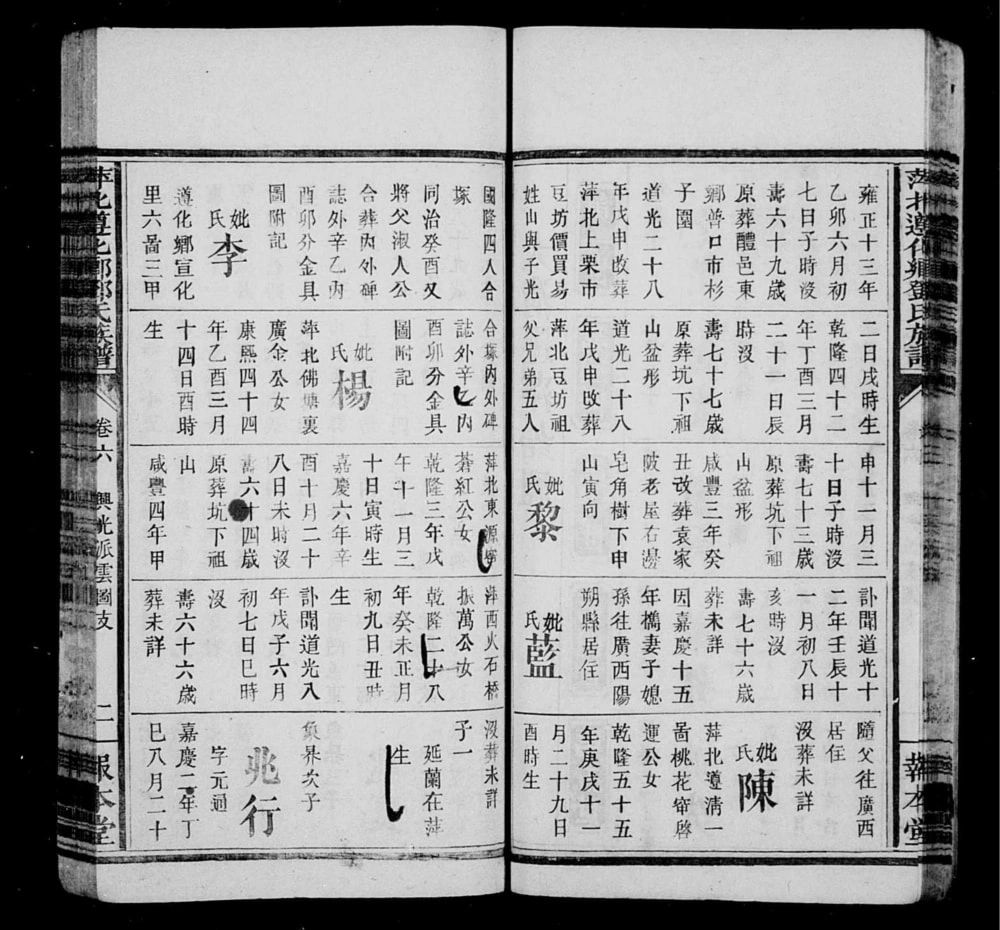 萍北遵化鄉鄧氏族譜
報本堂
雍正十三年
乙卯六月初
七日子時沒
壽六十九歲
原葬醴邑東
鄉普口市杉
子園
道光二十八
年戊申改葬
萍北上栗市
豆坊價買易
姓山與子光
二日戌時生
乾隆四十二
年丁酉三月
二十一日辰
時沒
壽七十七歲
原葬坑下祖
山盆形
道光二十八
年戊申改葬
萍北豆坊祖
父兄弟五人
申十一月三
十日子時沒
壽七十三歲
原葬坑下祖
山盆形
咸豐三年癸
丑改葬袁家
陂老屋右邊
皂角樹下申
山寅向
妣黎氏
訃聞道光十
二年壬辰十
一月初八日
亥時沒
壽七十六歲
葬未詳
因嘉慶十五
年橋妻子媳
孫往廣西陽
朔縣居住
妣藍氏
隨父往廣西
居住
沒葬未詳
妣陳氏
萍北遵清一
啚桃花窜啓
運公女
乾隆五十五
年庚戌十一
月二十九日
酉時生
國隆四人合
塚
同治癸酉又
將父淑人公
合葬內外碑
誌外辛乙內
酉卯分金具
圖附記
妣李氏
遵化鄉宣化
里六啚三甲
合塚內外碑
誌外辛乙內
酉卯分金具
圖附記
妣楊氏
萍北佛塘裏
廣金公女
康熙四十四
年乙酉三月
十四日酉時
生
萍北東源
蒼紅公女
乾隆三年戊
午十一月三
十日寅時生
嘉慶六年辛
酉十月二十
八日未時沒
壽六十四歲
原葬坑下祖
山
咸豐四年甲
萍西火石橋
振萬公女
乾隆二十八
年癸未正月
初九日丑時
生
訃聞道光八
年戊子六月
初七日巳時
沒
壽六十六歲
葬未詳
沒葬未詳
子一
延蘭在萍
生
象界次子
兆行
字元迴
嘉慶二年丁
巳八月二十
萍北遵化鄉鄧氏族譜
卷六
興光派雲岡支
二
報本堂